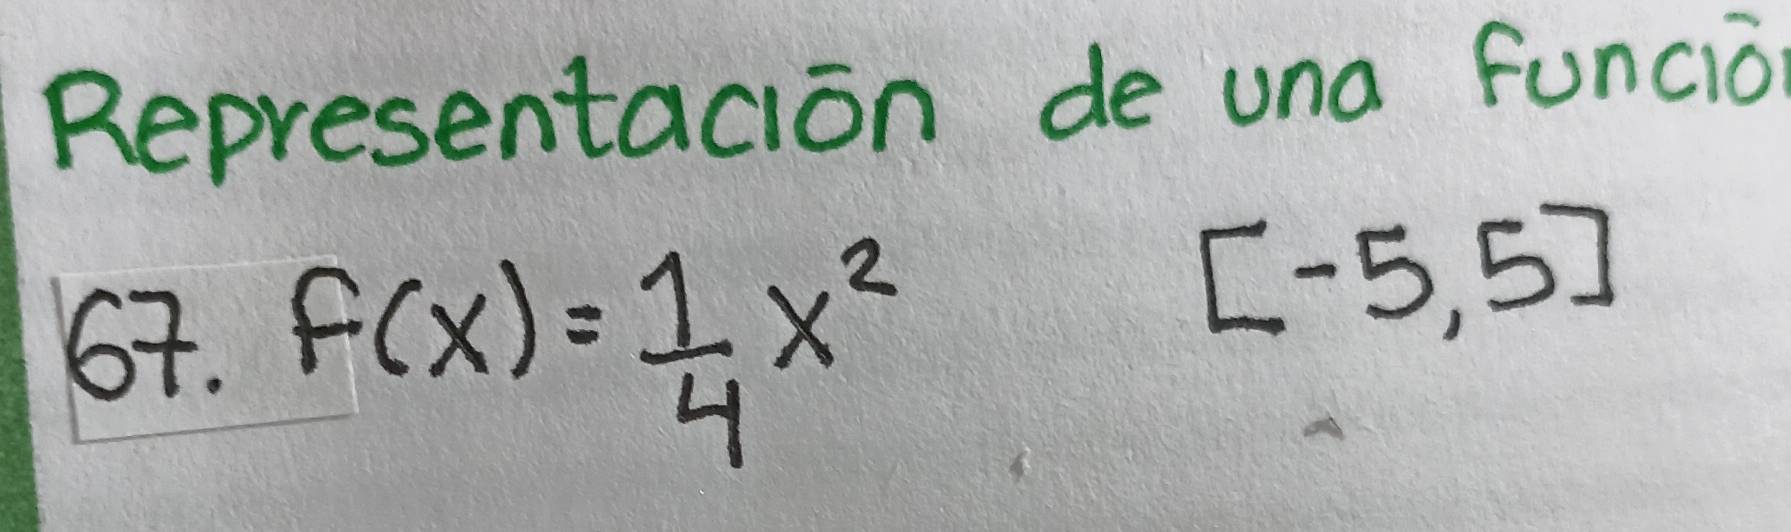 Representación de una función
67. f(x) = 1/4 x² [-5, 5]